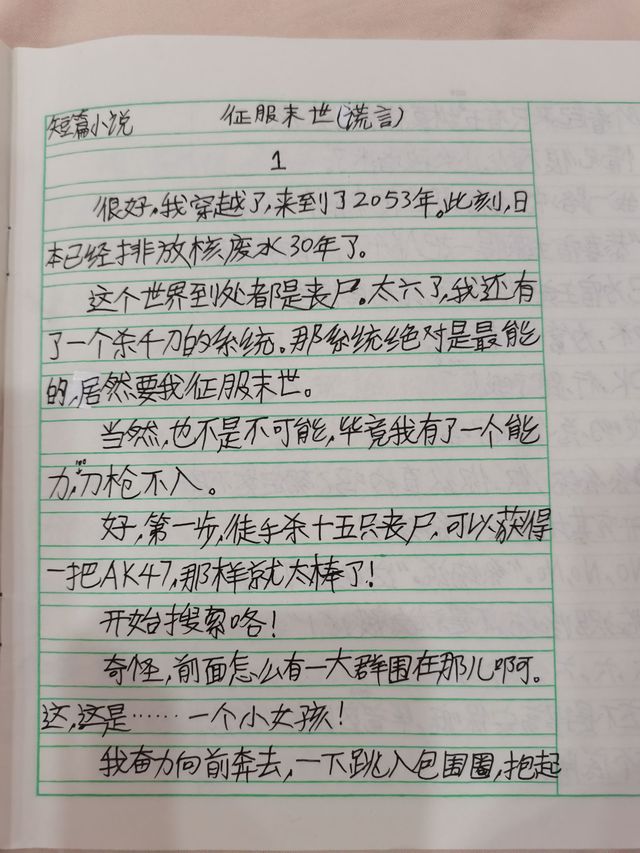 短篇小说 征服末世(谎言)
1
很好。我穿越了,来到了2053年。此刻,日
本已经排放核废水30年了。
这个世界到处都是丧尸。太六了,我还有
了一个杀千刀的系统。那系统绝对是最能
的,居然要我征服末世。
当然,也不是不可能,毕竟我有了一个能
力,刀枪不入。
好,第一步,徒手杀十五只丧尸,可以获得
一把AK47,那样就太棒了!
开始搜索咯!
奇怪,前面怎么有一大群围在那儿啊。
这,这是……一个小女孩!
我奋力向前奔去,一下跳入包围圈,抱起